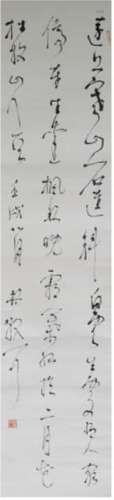 遠上寒山石逕斜白雲生處有人家
停車坐愛楓林晚霜葉紅於二月花
杜牧山行 壬戌八月